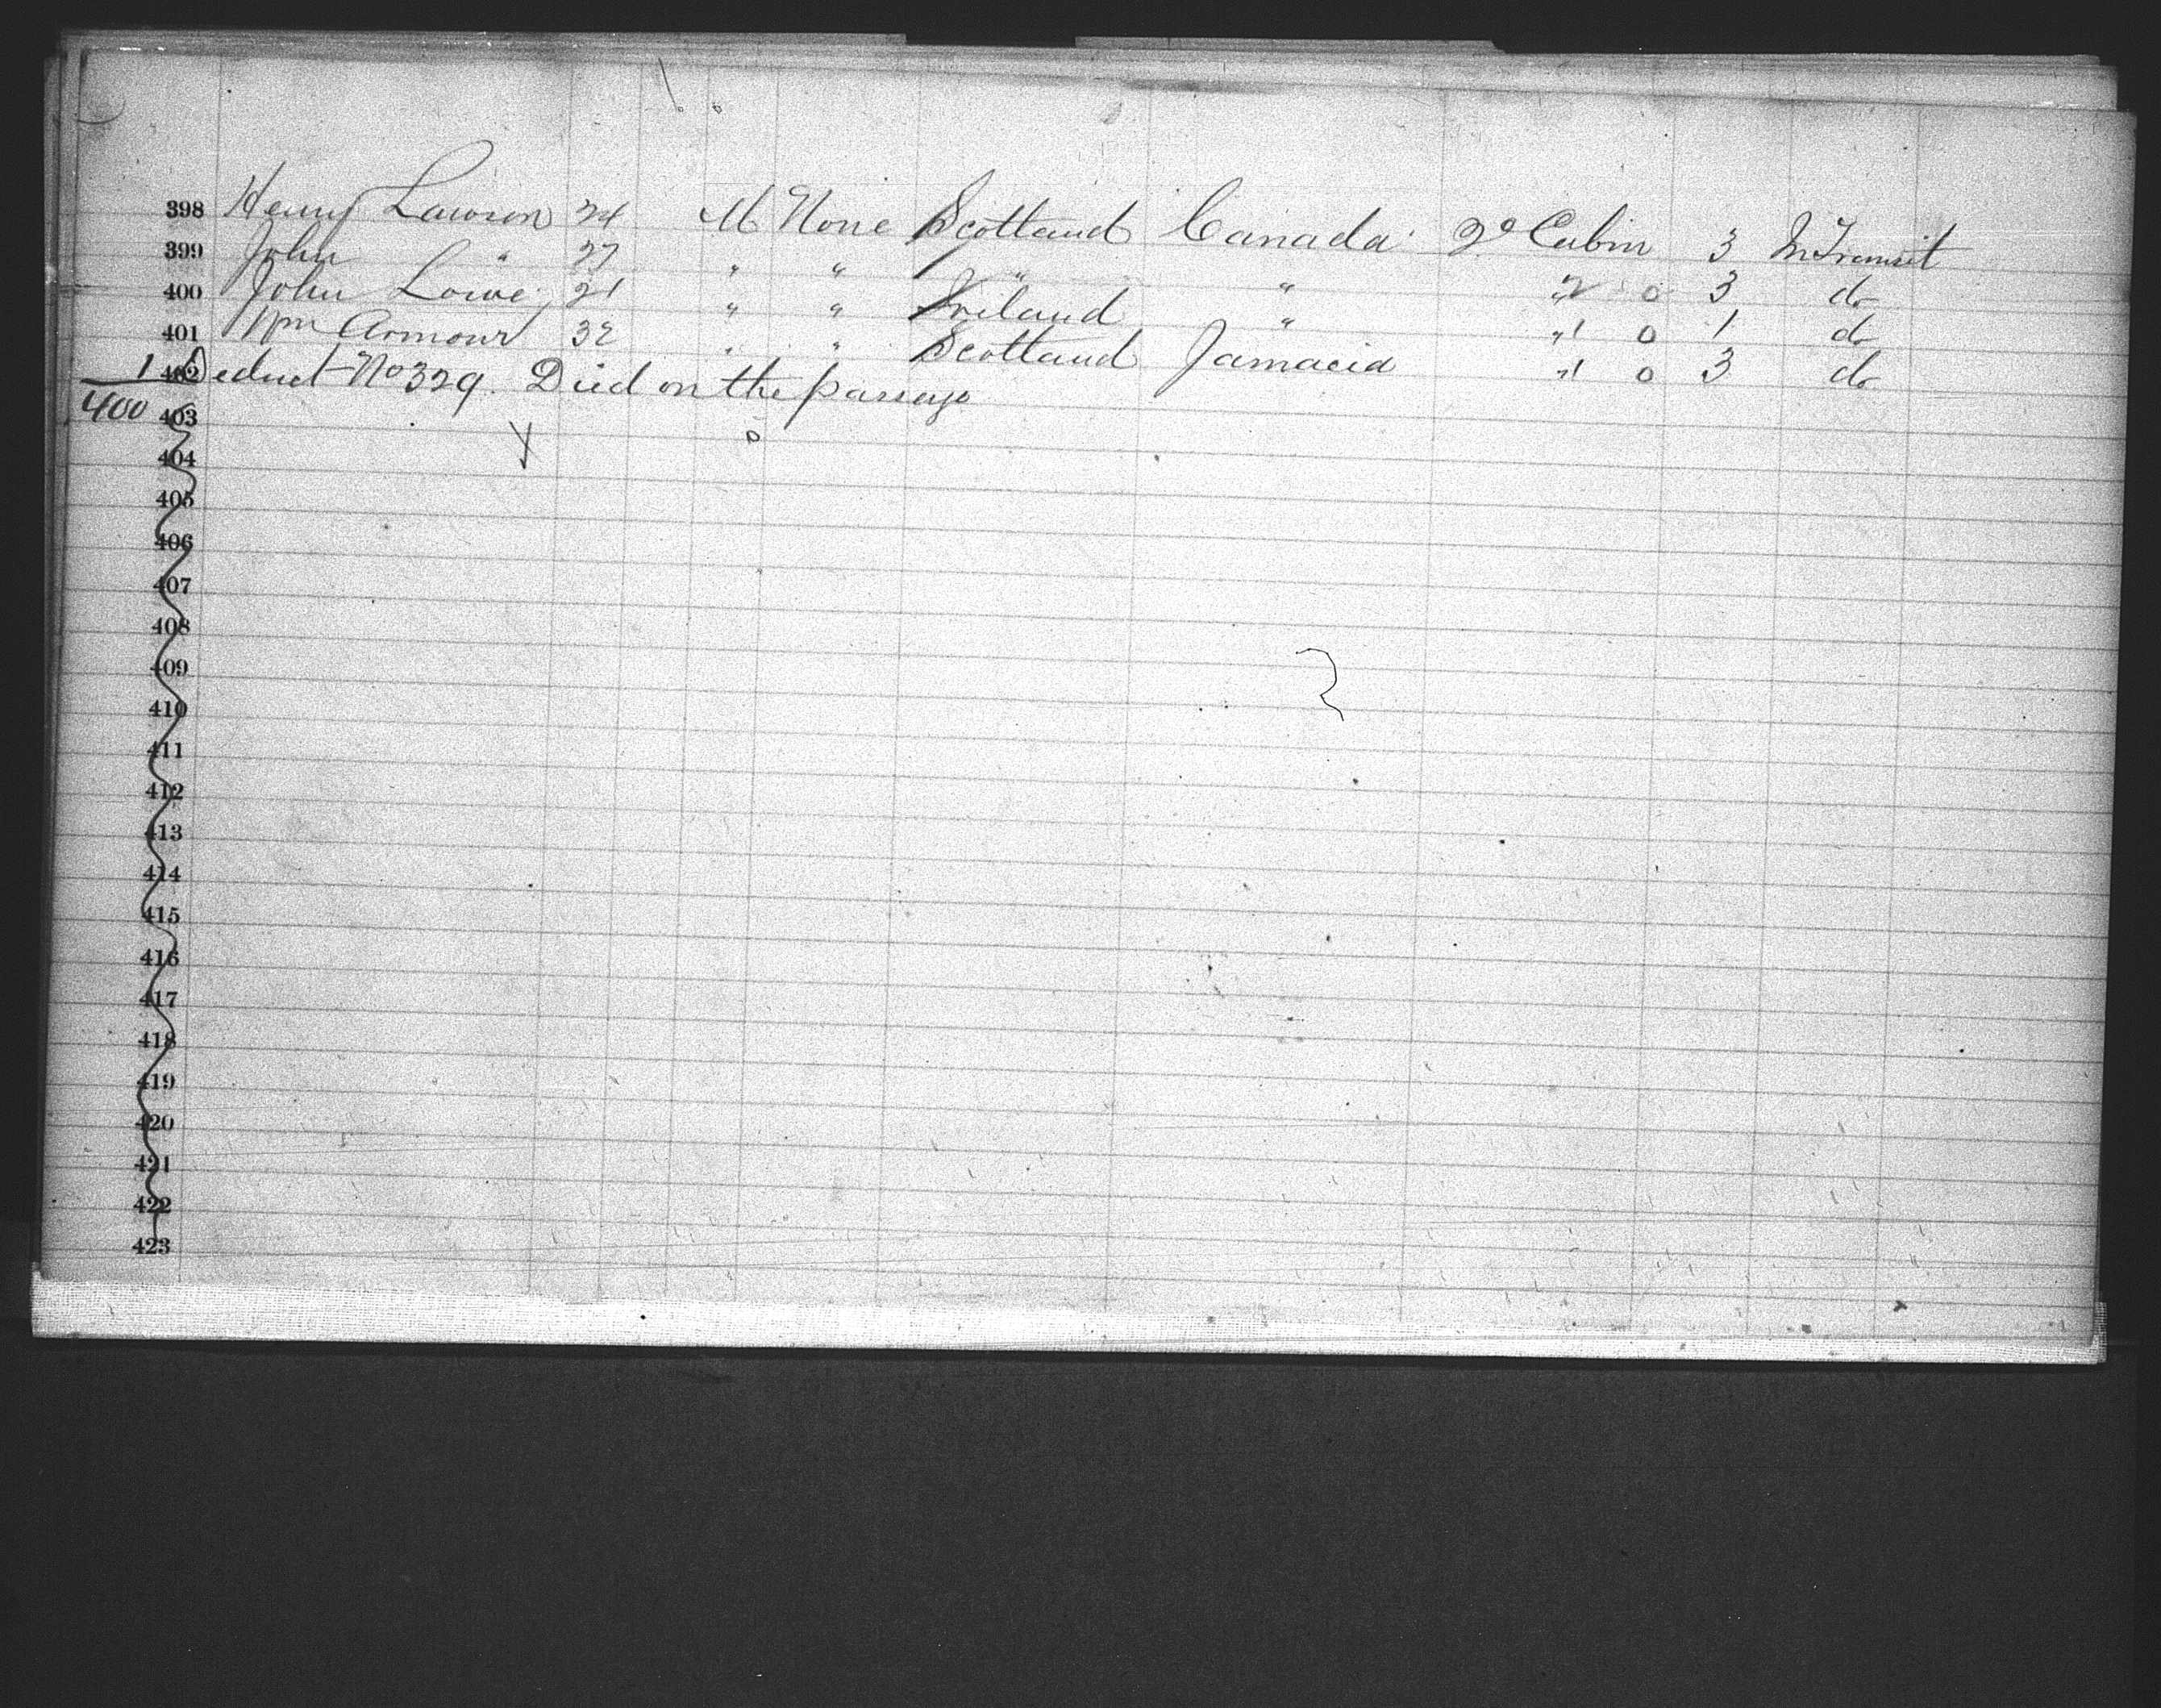 398 Henry Lawson 24 M None Scotland Canada 2º Cabin 3 In Transit
399 John " 27 " " " " " 2 0 3 do
400 John Lowe 21 " " Ireland " " 1 0 1 do
401 Wm Armour 32 " " Scotland Jamacia " 1 0 3 do
1 402 Deduct No 329. Died on the passage
400 403
404
405
406
407
408
409
410
411
412
413
414
415
416
417
418
419
420
421
422
423